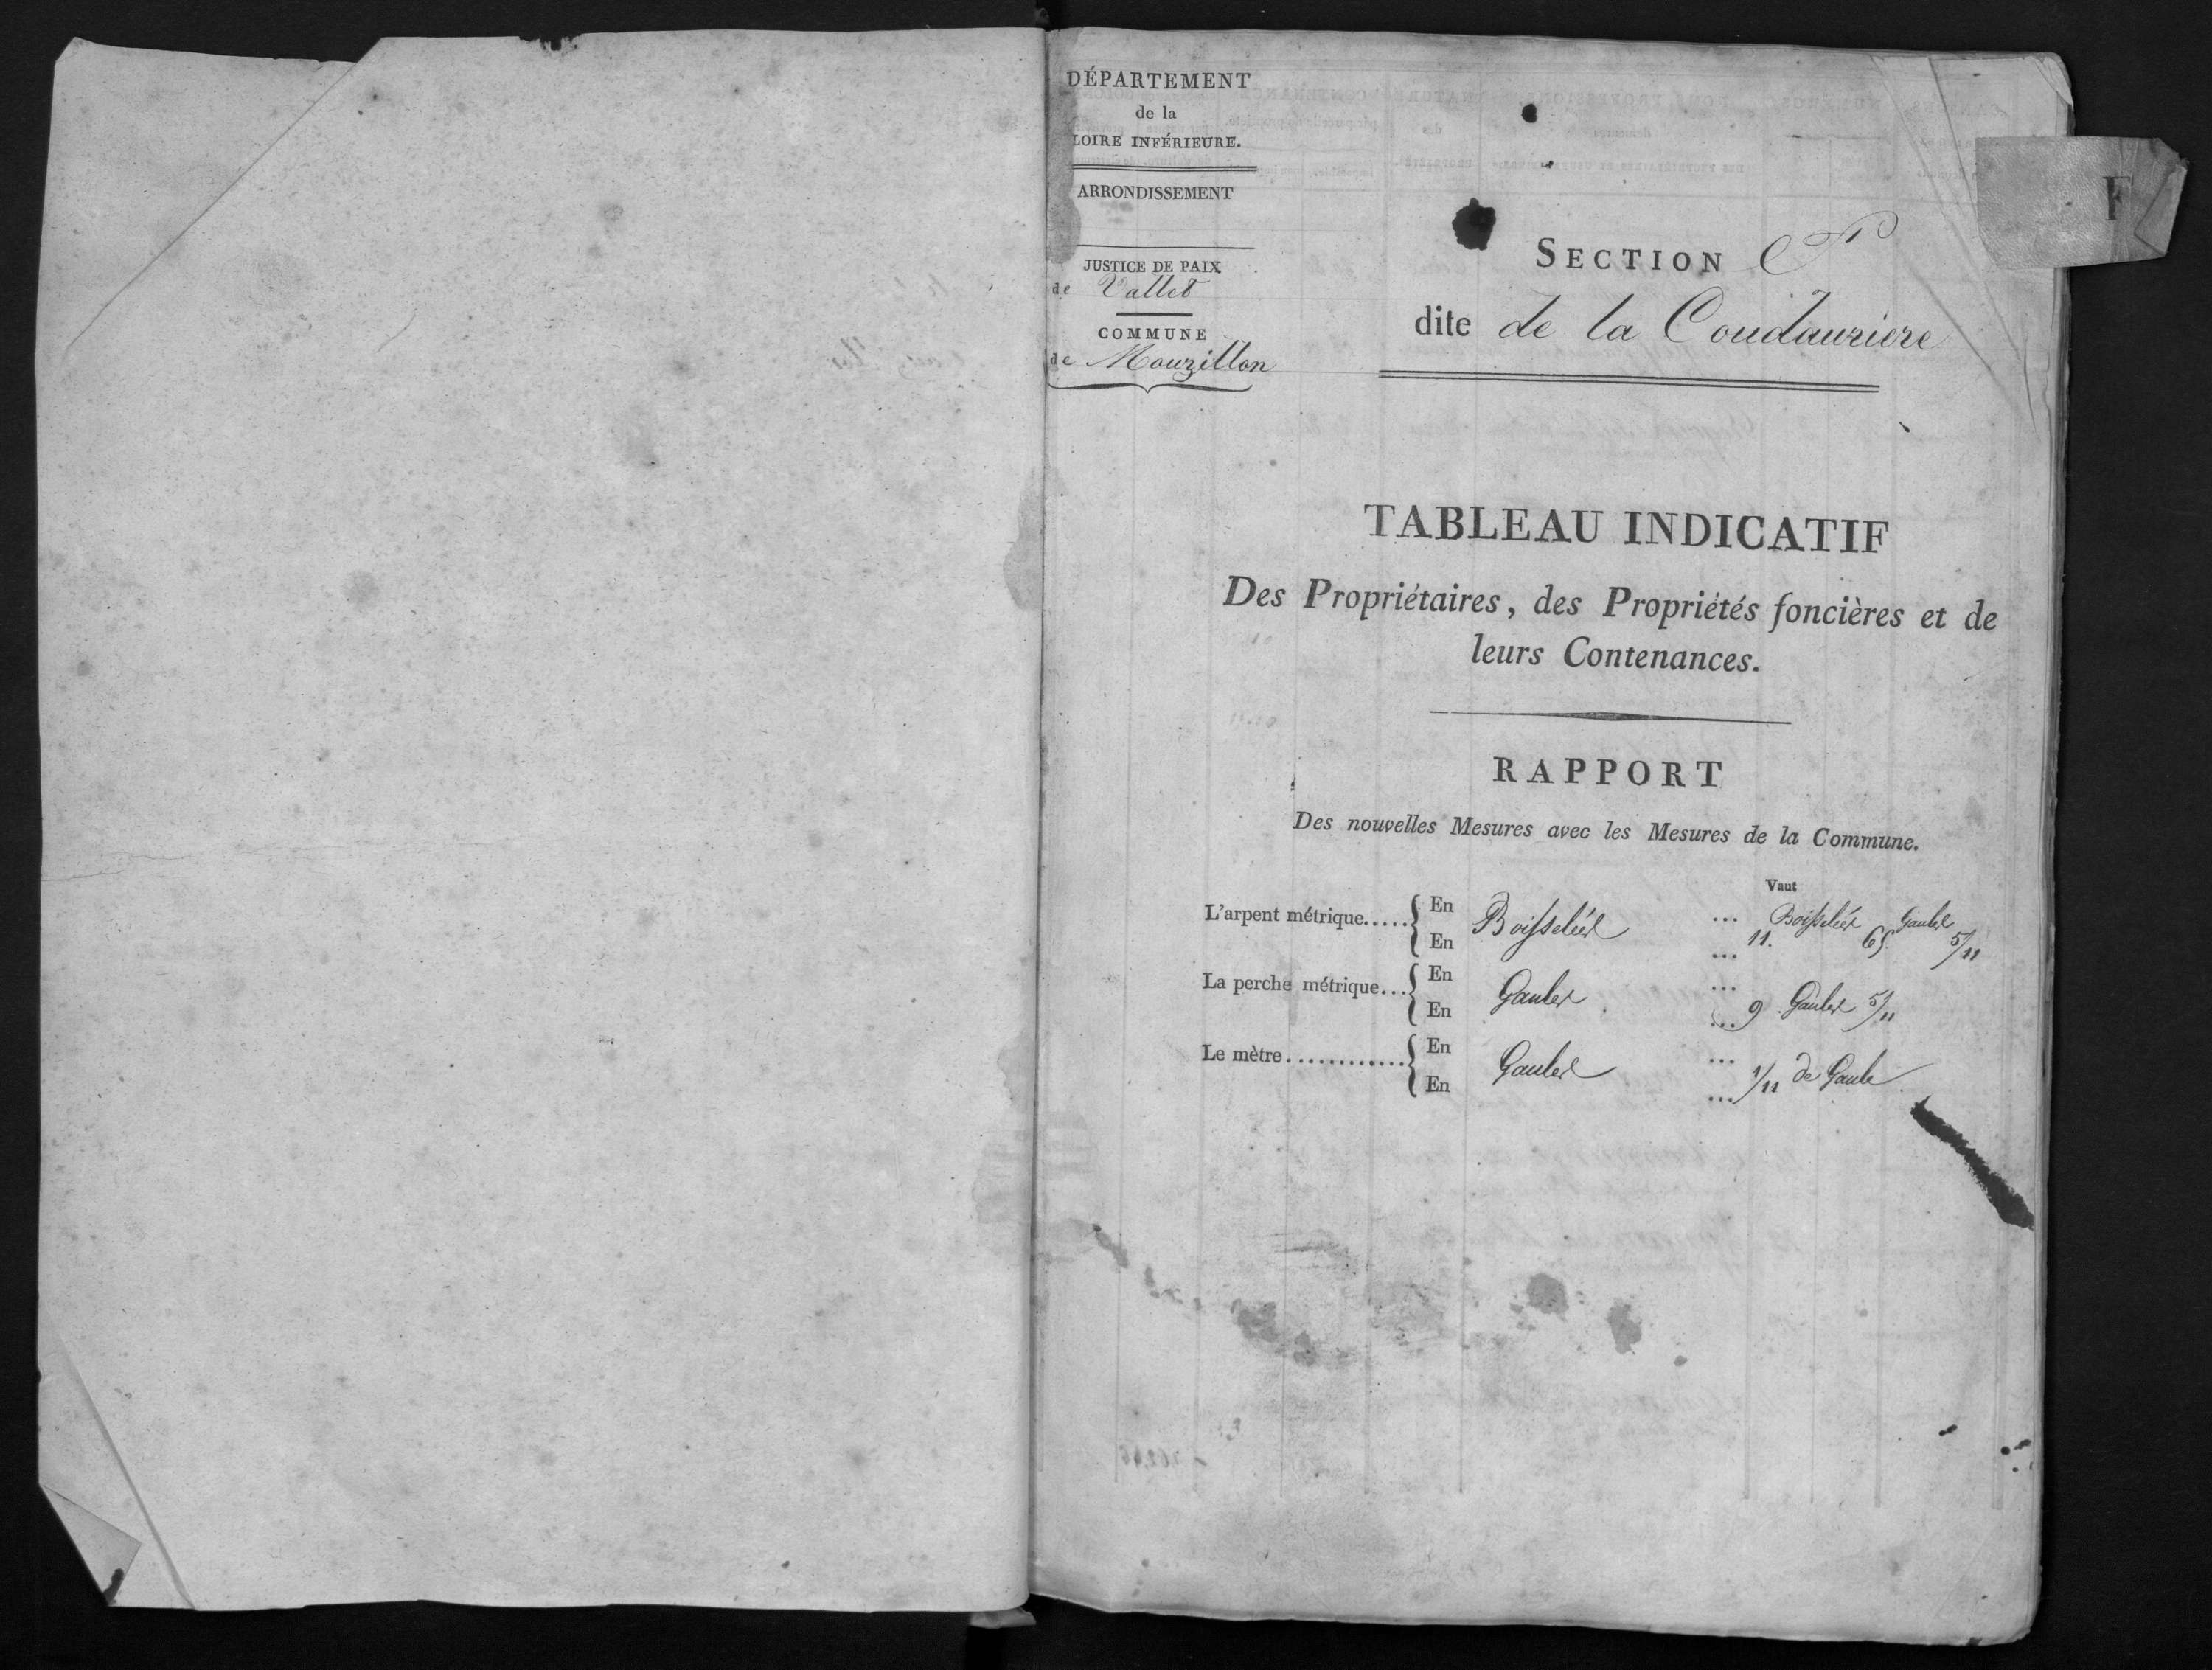 DÉPARTEMENT
de la
LOIRE INFÉRIEURE.
ARRONDISSEMENT
JUSTICE DE PAIX
de Vallet
COMMUNE
de Mouzillon
F
SECTION F
dite de la Coudauriere
TABLEAU INDICATIF
Des Propriétaires, des Propriétés foncières et de
leurs Contenances.
RAPPORT
Des nouvelles Mesures avec les Mesures de la Commune.
Vaut
L'arpent métrique..... { En Boisselées ... Boisselées Gaules
En ... 11. 65 5/11
La perche métrique... { En Gaules ...
En ... 9 Gaules 5/11
Le mètre............ { En Gaules ...
En ... 1/11 de Gaule